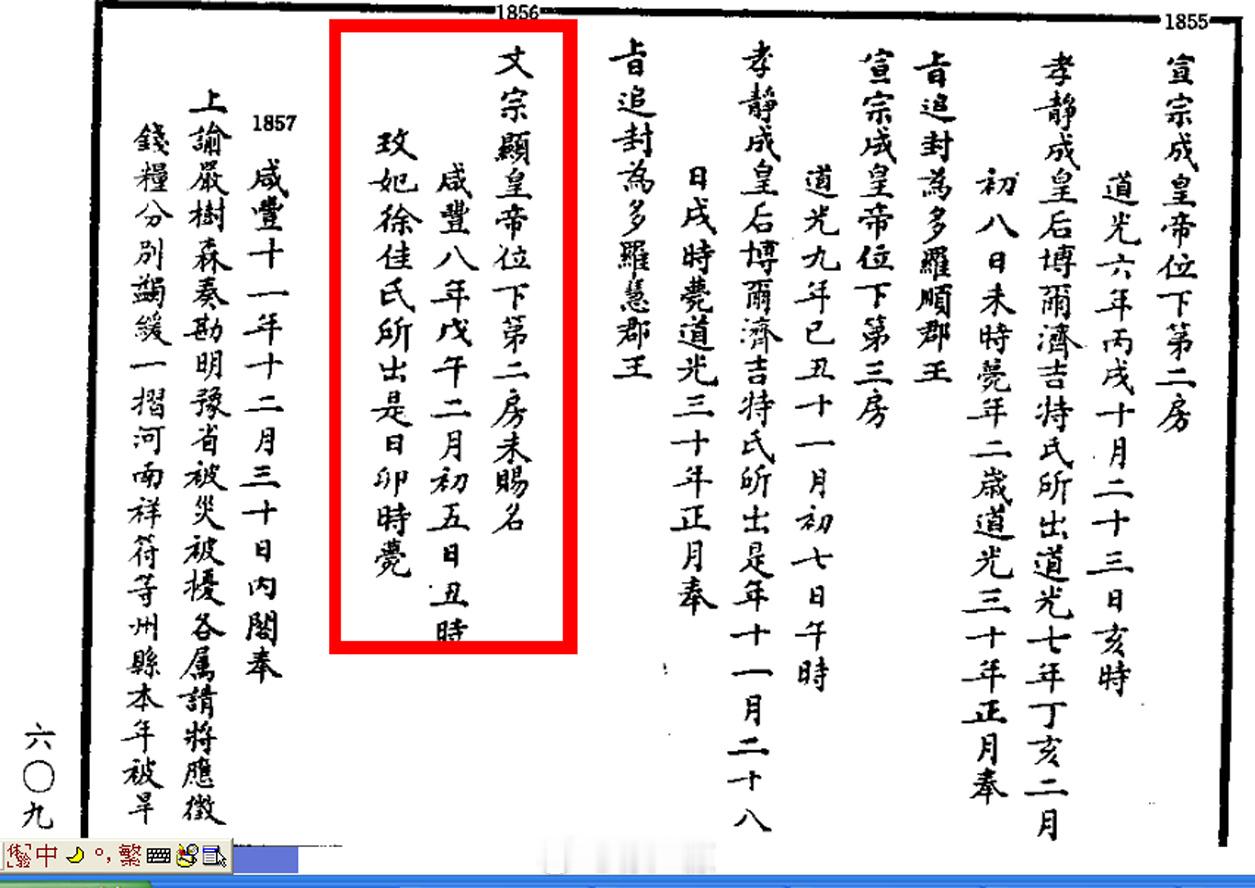 1855
宣宗成皇帝位下第二房
道光六年丙戌十月二十三日亥時
孝靜成皇后博爾濟吉特氏所出道光七年丁亥二月
初八日未時薨年二歲道光三十年正月奉
旨追封為多羅順郡王
宣宗成皇帝位下第三房
道光九年己丑十一月初七日午時
孝靜成皇后博爾濟吉特氏所出是年十一月二十八
日戌時薨道光三十年正月奉
旨追封為多羅慧郡王
1856
文宗顯皇帝位下第二房未賜名
咸豐八年戊午二月初五日丑時
玫妃徐佳氏所出是日卯時薨
1857
咸豐十一年十二月三十日內閣奉
上諭嚴樹森奏勘明豫省被災被擾各屬請將應徵
錢糧分別蠲緩一摺河南祥符等州縣本年被旱
六〇九
中 繁